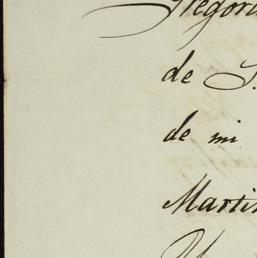 Gregori
de S.
de mi
Martin